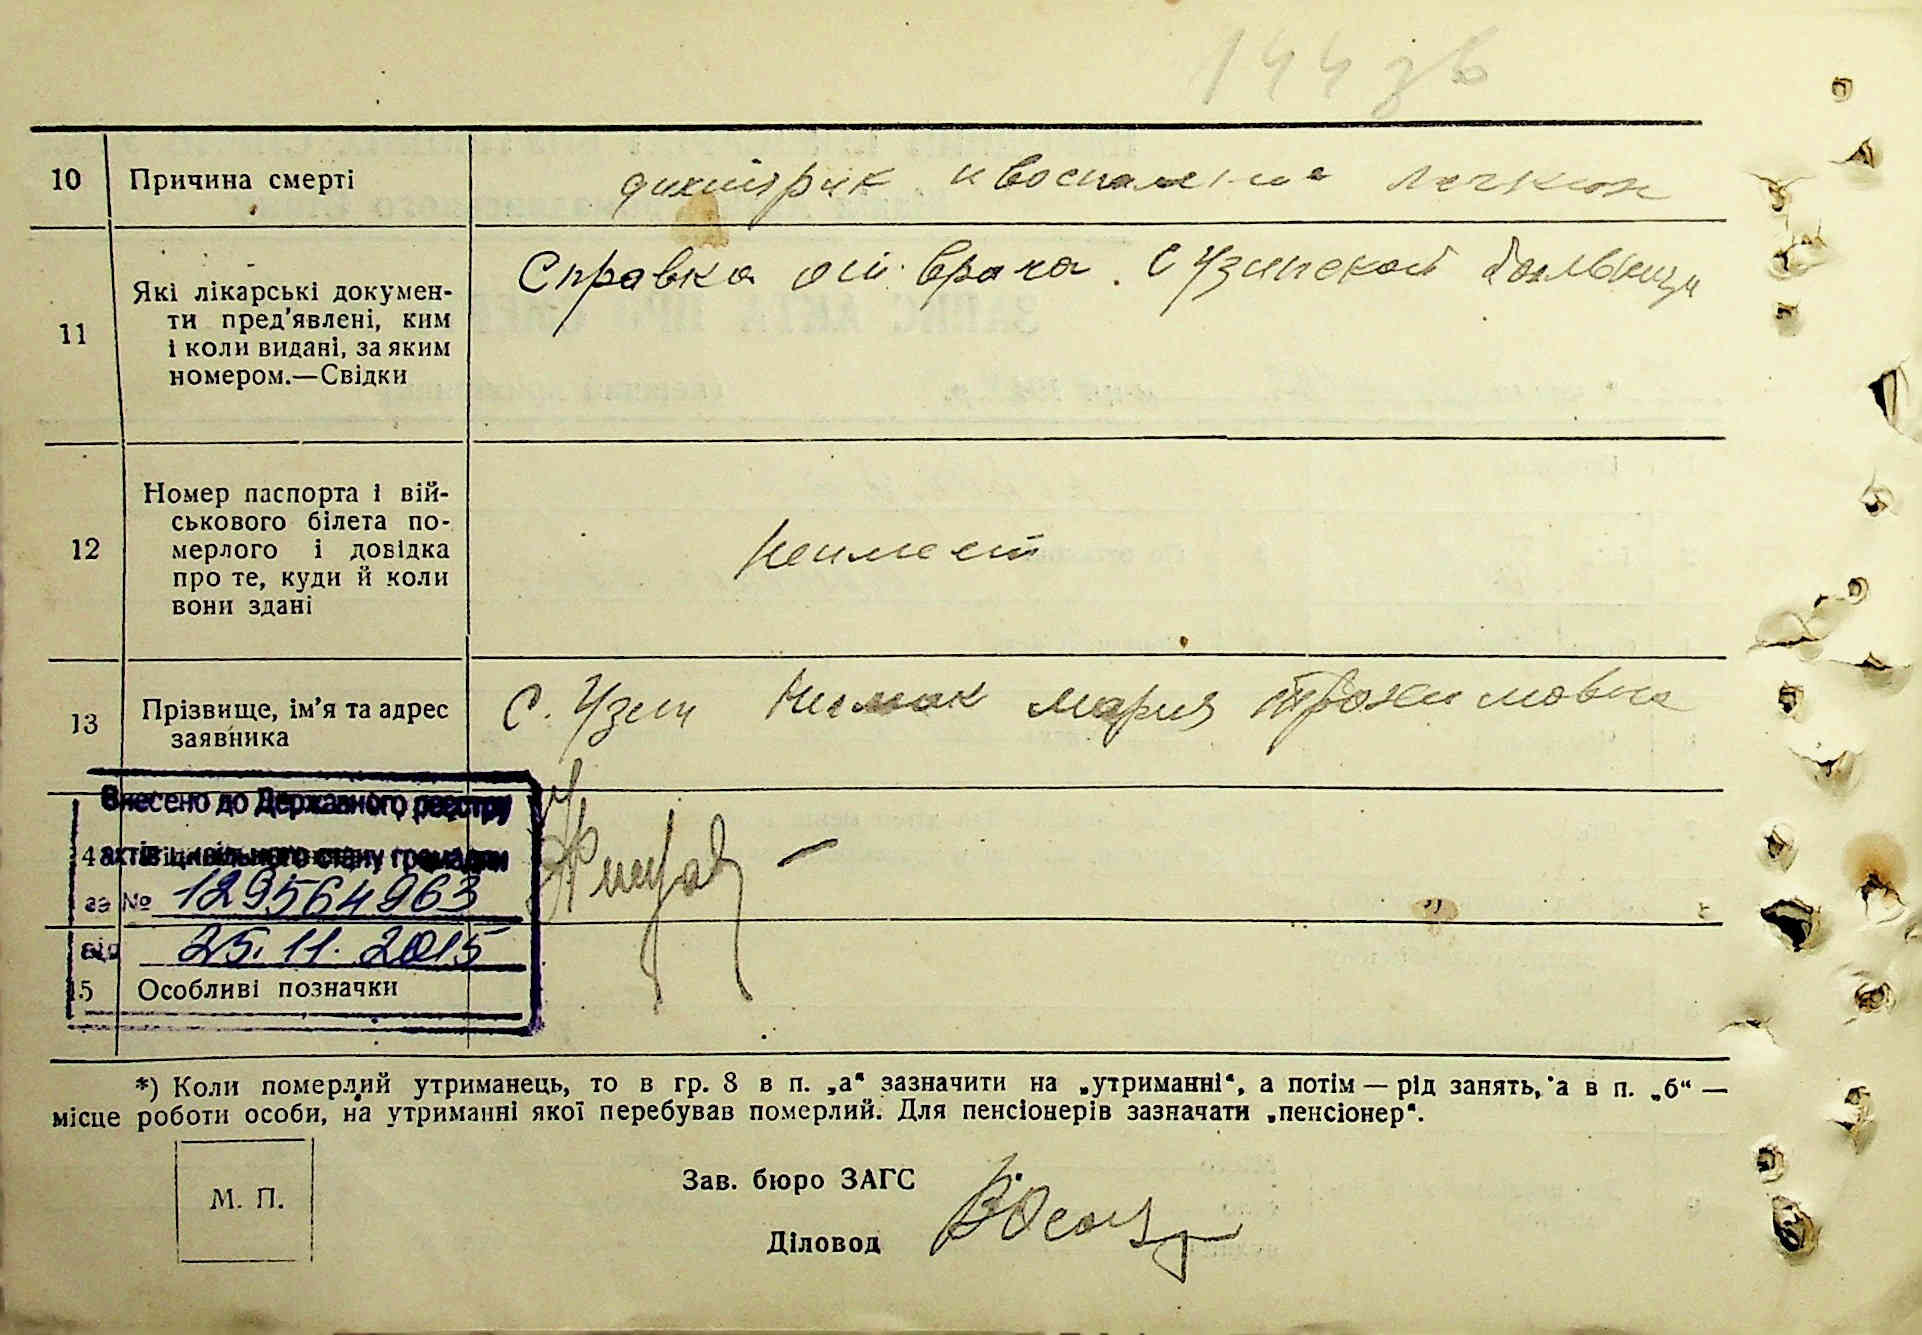 144 зв
10 Причина смерти воспаление легких
Які лікарські докумен-
Справка от врача. с Узинской больницы
11 ти пред'явлені, ким
і коли видані, за яким
номером.—Свідки
Номер паспорта і вій-
ськового білета по-
12 мерлого і довідка
неимеет
про те, куди й коли
вони здані
13 Прізвище, ім'я та адрес
заявника
с. Узин Мария Трохимовна
Внесено до Державного реєстру
актів цивільного стану громадян
за № 129564963
від 25.11.2015
15 Особливі позначки
*) Коли померлий утриманець, то в гр. 8 в п. „а" зазначити на „утриманні", а потім — рід занять, а в п. „б" —
місце роботи особи, на утриманні якої перебував померлий. Для пенсіонерів зазначати „пенсіонер".
М. П.
Зав. бюро ЗАГС
Діловод